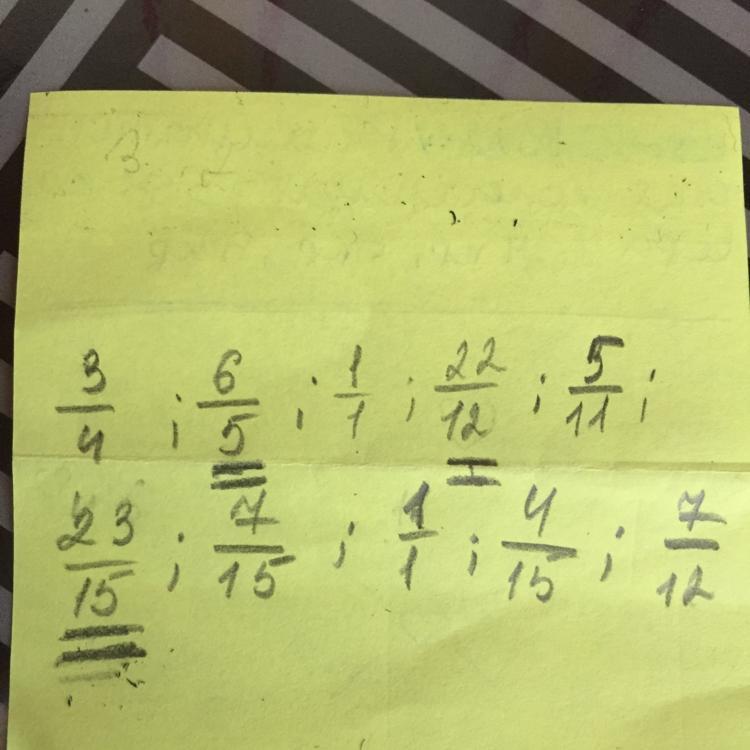 3/4 ; 6/5 ; 1/1 ; 22/12 ; 5/11 ;
23/15 ; 7/15 ; 1/1 ; 4/15 ; 7/12